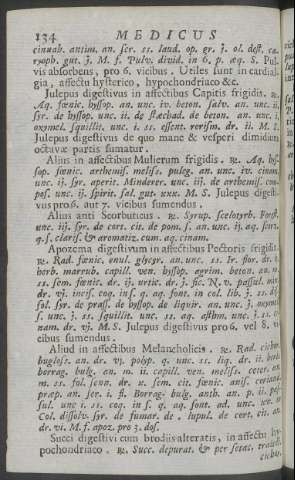 134 MEDICUS
cinnab. antim. an. ser. ss. laud. op. gr. j. ol. dest. ca-
ryoph. gut. j. M. f. Pulv. divid. in 6. p. æq. S. Pul-
vis absorbens, pro 6. vicibus. Utiles sunt in cardial-
gia, affectu hysterico, hypochondriaco &c.
Julepus digestivus in affectibus Capitis frigidis. ℞.
Aq. fœnic. hyssop. an. unc. iv. beton. salv. an. unc. ii,
syr. de hyssop. unc. ii. de stæchad. de beton. an. unc. i,
oxymel. squillit. unc. i. ss. essent. rorism. dr. ii. M. S.
Julepus digestivus de quo mane & vesperi dimidium
octavæ partis sumatur.
Alius in affectibus Mulierum frigidis. ℞. Aq. hys-
sop. fœnic. arthemis. meliss. puleg. an. unc. iv. cinam.
unc. ij. syr. aperit. Minderer. unc. iij. de arthemis. com-
pos. unc. ij. spirit. sal. gut. xxx. M. S. Julepus digesti-
vus pro 6. aut 7. vicibus sumendus.
Alius anti Scorbuticus. ℞. Syrup. scelotyrb. Forest.
unc. iij. syr. de cort. cit. de pom. s. an. unc. ij. aq. scorz.
q. s. clarif. & aromatiz. cum. aq. cinam.
Apozema digestivum in affectibus Pectoris frigidis.
℞. Rad. fœnic. enul. glycyr. an. unc. ss. Ir. flor. dr.
herb. marrub. capill. ven. hyssop. agrim. beton. an. m.
ss. sem. fœnic. dr. ij. urtic. dr. j. fic. N. v. passul. min.
dr. vj. incis. coq. in s. q. aq. font. in col. lib. j. ss.
sol. syr. de prass. de hyssop. de liquir. an. unc. j. oxymel.
s. unc. j. ss. squillit. unc. ss. aq. asthm. unc. j. ss. ci-
nam. dr. vj. M. S. Julepus digestivus pro 6. vel 8. vi-
cibus sumendus.
Aliud in affectibus Melancholicis. ℞. Rad. cichor.
bugloss. an. dr. vj. polyp. q. unc. ss. liq. dr. ii. herb.
borrag. bulg. an. m. ii. capill. ven. meliss. ceter. an.
m. ss. fol. senn. dr. u. sem. cit. fœnic. anis. coriand.
præp. an. ser. i. fl. Borrag. bulg. anth. an. p. ii. pas-
sul. unc i. ss. coq. in s. q. aq. font. ad. unc.
Col. dissolv. syr. de fumar. de. lupul. de cort. cit. an.
dr. vi. M. f. apoz. pro 3. dos.
Succi digestivi cum brodiis alteratis, in affectu hy-
pochondriaco. ℞. Succ. depurat. & per setac. traject.
cichor.